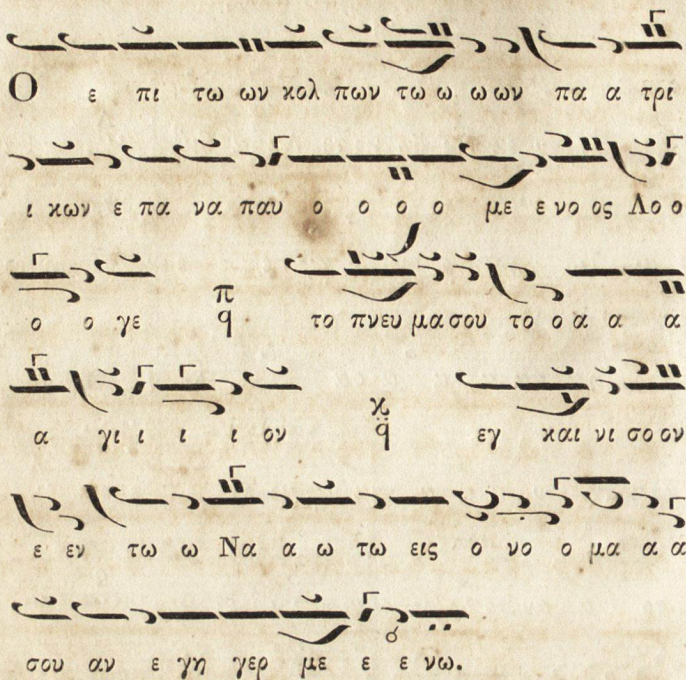 Ο ε πι τω ων κολ πων τω ω ω ων πα α τρι
ι κων ε πα να παυ ο ο ο ο με ε νο ος Λο ο
ο ο γε π q το πνευ μα σου το ο α α α
α γι ι ι ι ον κ q εγ και νι σο ον
ε εν τω ω Να α ω τω εις ο νο ο μα α α
σου αν ε γη γερ με ε ε νω.